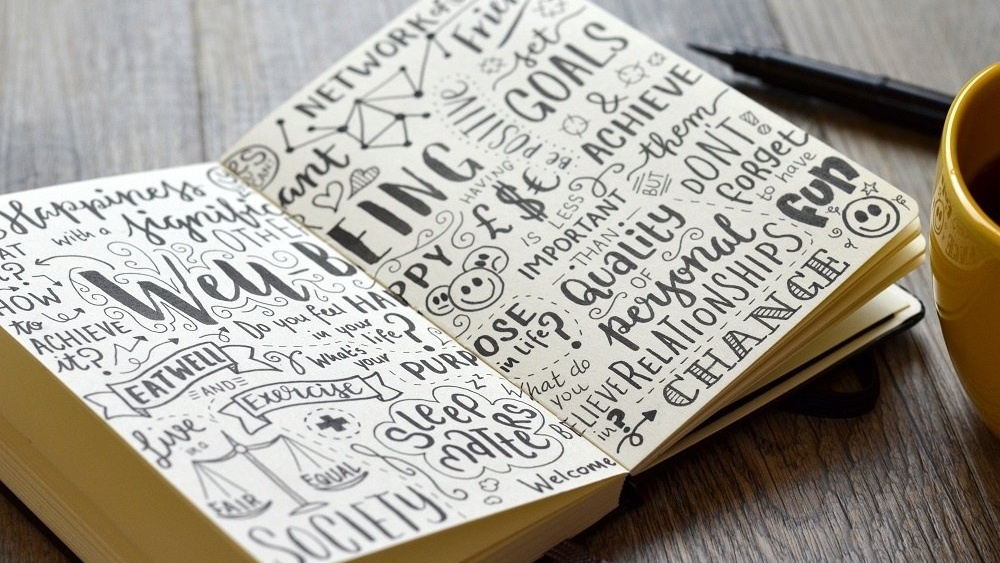 Happiness
with a
significant
OTHER
HOW
to
ACHIEVE
it?
Well-BEING
Do you feel HAPPY
in your life?
What's your PURPOSE
in Life?
EAT WELL
AND
Exercise
Live
in a
FAIR
EQUAL
SOCIETY
z
SLEEP
MATTERS
Welcome
CHANGE
NETWORK of
set
GOALS
&
ACHIEVE
them
BE POSITIVE
HAVING
£ $ €
IS LESS
IMPORTANT
THAN
BUT
DON'T
FORGET
to have
FUN
Quality
OF
personal
RELATIONSHIPS
What do
you
BELIEVE
in?